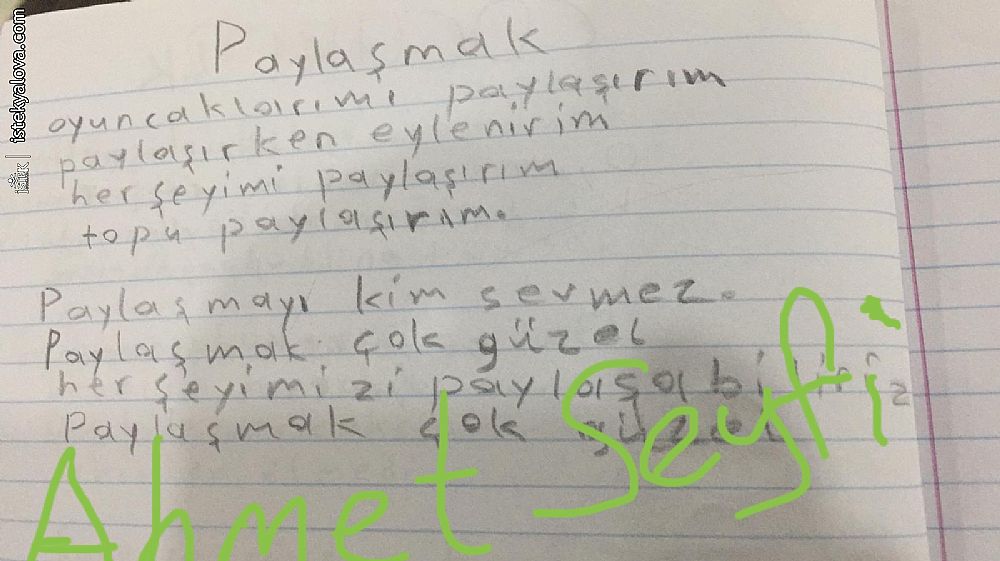 Paylaşmak
oyuncaklarımı paylaşırım
paylaşırken eylenirim
her şeyimi paylaşırım
topu paylaşırım.
Paylaşmayı kim sevmez.
Paylaşmak çok güzel
her şeyimizi paylaşabiliriz
Paylaşmak çok güzel
Ahmet Seyfi
istekyalova.com